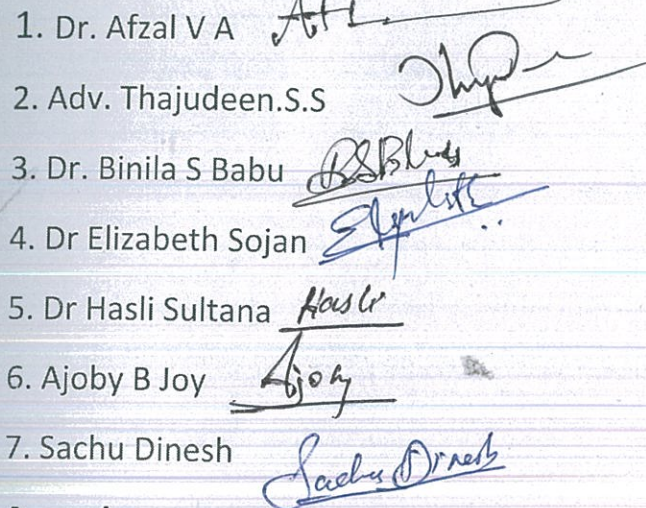 1. Dr. Afzal V A
2. Adv. Thajudeen.S.S
3. Dr. Binila S Babu
4. Dr Elizabeth Sojan Elizabeth
5. Dr Hasli Sultana Hasli
6. Ajoby B Joy Ajoby
7. Sachu Dinesh Sachu Dinesh